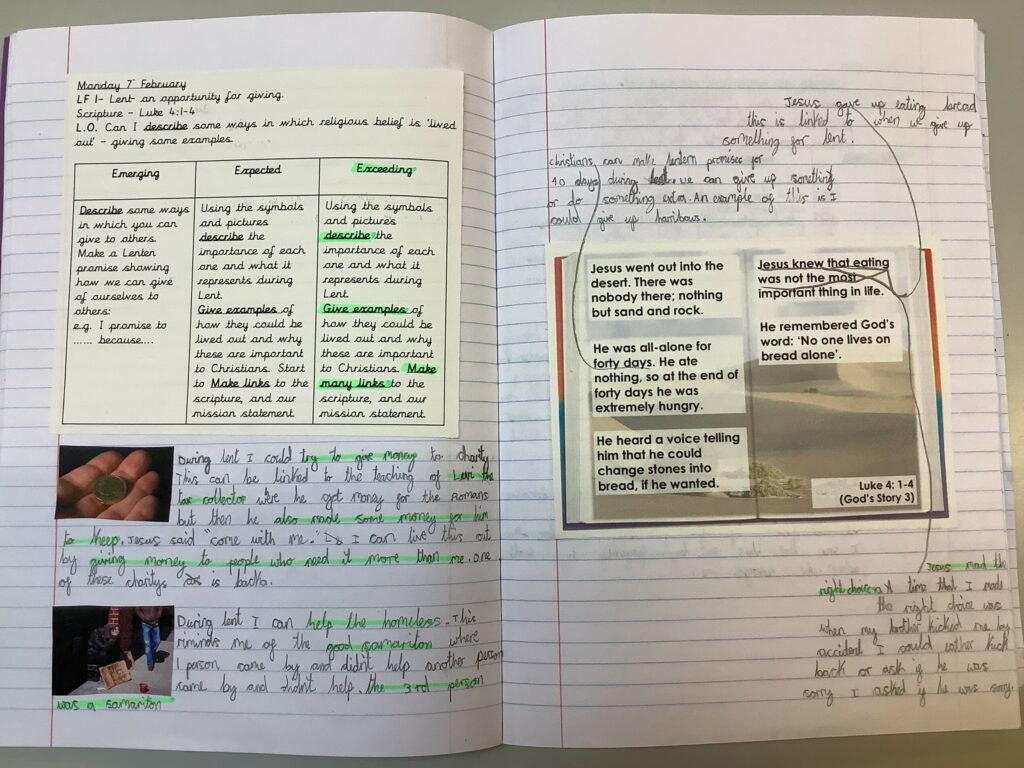 Monday 7th February
LF 1- Lent- an opportunity for giving.
Scripture - Luke 4:1-4
L.O. Can I describe some ways in which religious belief is 'lived
out' - giving some examples.
Emerging
Describe some ways
in which you can
give to others.
Make a Lenten
promise showing
how we can give
of ourselves to
others:
e.g. I promise to
...... because....
Expected
Using the symbols
and pictures
describe the
importance of each
one and what it
represents during
Lent.
Give examples of
how they could be
lived out and why
these are important
to Christians. Start
to Make links to the
scripture, and our
mission statement
Exceeding
Using the symbols
and pictures
describe the
importance of each
one and what it
represents during
Lent.
Give examples of
how they could be
lived out and why
these are important
to Christians. Make
many links to the
scripture, and our
mission statement
During lent I could try to give money to charity
This can be linked to the teaching of Levi the
tax collector were he got money for the Romans
but then he also made some money for him
to keep. Jesus said "come with me." I can live this out
by giving money to people who need it more than me. one
of these charitys is
During lent I can help the homeless. This
riminds me of the good samariton where
1 person came by and didn't help another person
came by and didn't help. the 3rd person
was a samariton
Jesus gave up eating bread
this is linked to when we give up
something for lent.
christians can make lentern promises for
40 days during lent. we can give up something
or do something extra. An example of this is I
could give up haribows.
Jesus went out into the
desert. There was
nobody there; nothing
but sand and rock.
He was all-alone for
forty days. He ate
nothing, so at the end of
forty days he was
extremely hungry.
He heard a voice telling
him that he could
change stones into
bread, if he wanted.
Jesus knew that eating
was not the most
important thing in life.
He remembered God's
word: 'No one lives on
bread alone'.
Luke 4: 1-4
(God's Story 3)
Jesus mad the
right choice. A time that I made
the right choice was
when my brother kicked me by
accident I could eather kick
back or ask if he was
sorry I asked if he was sorry.